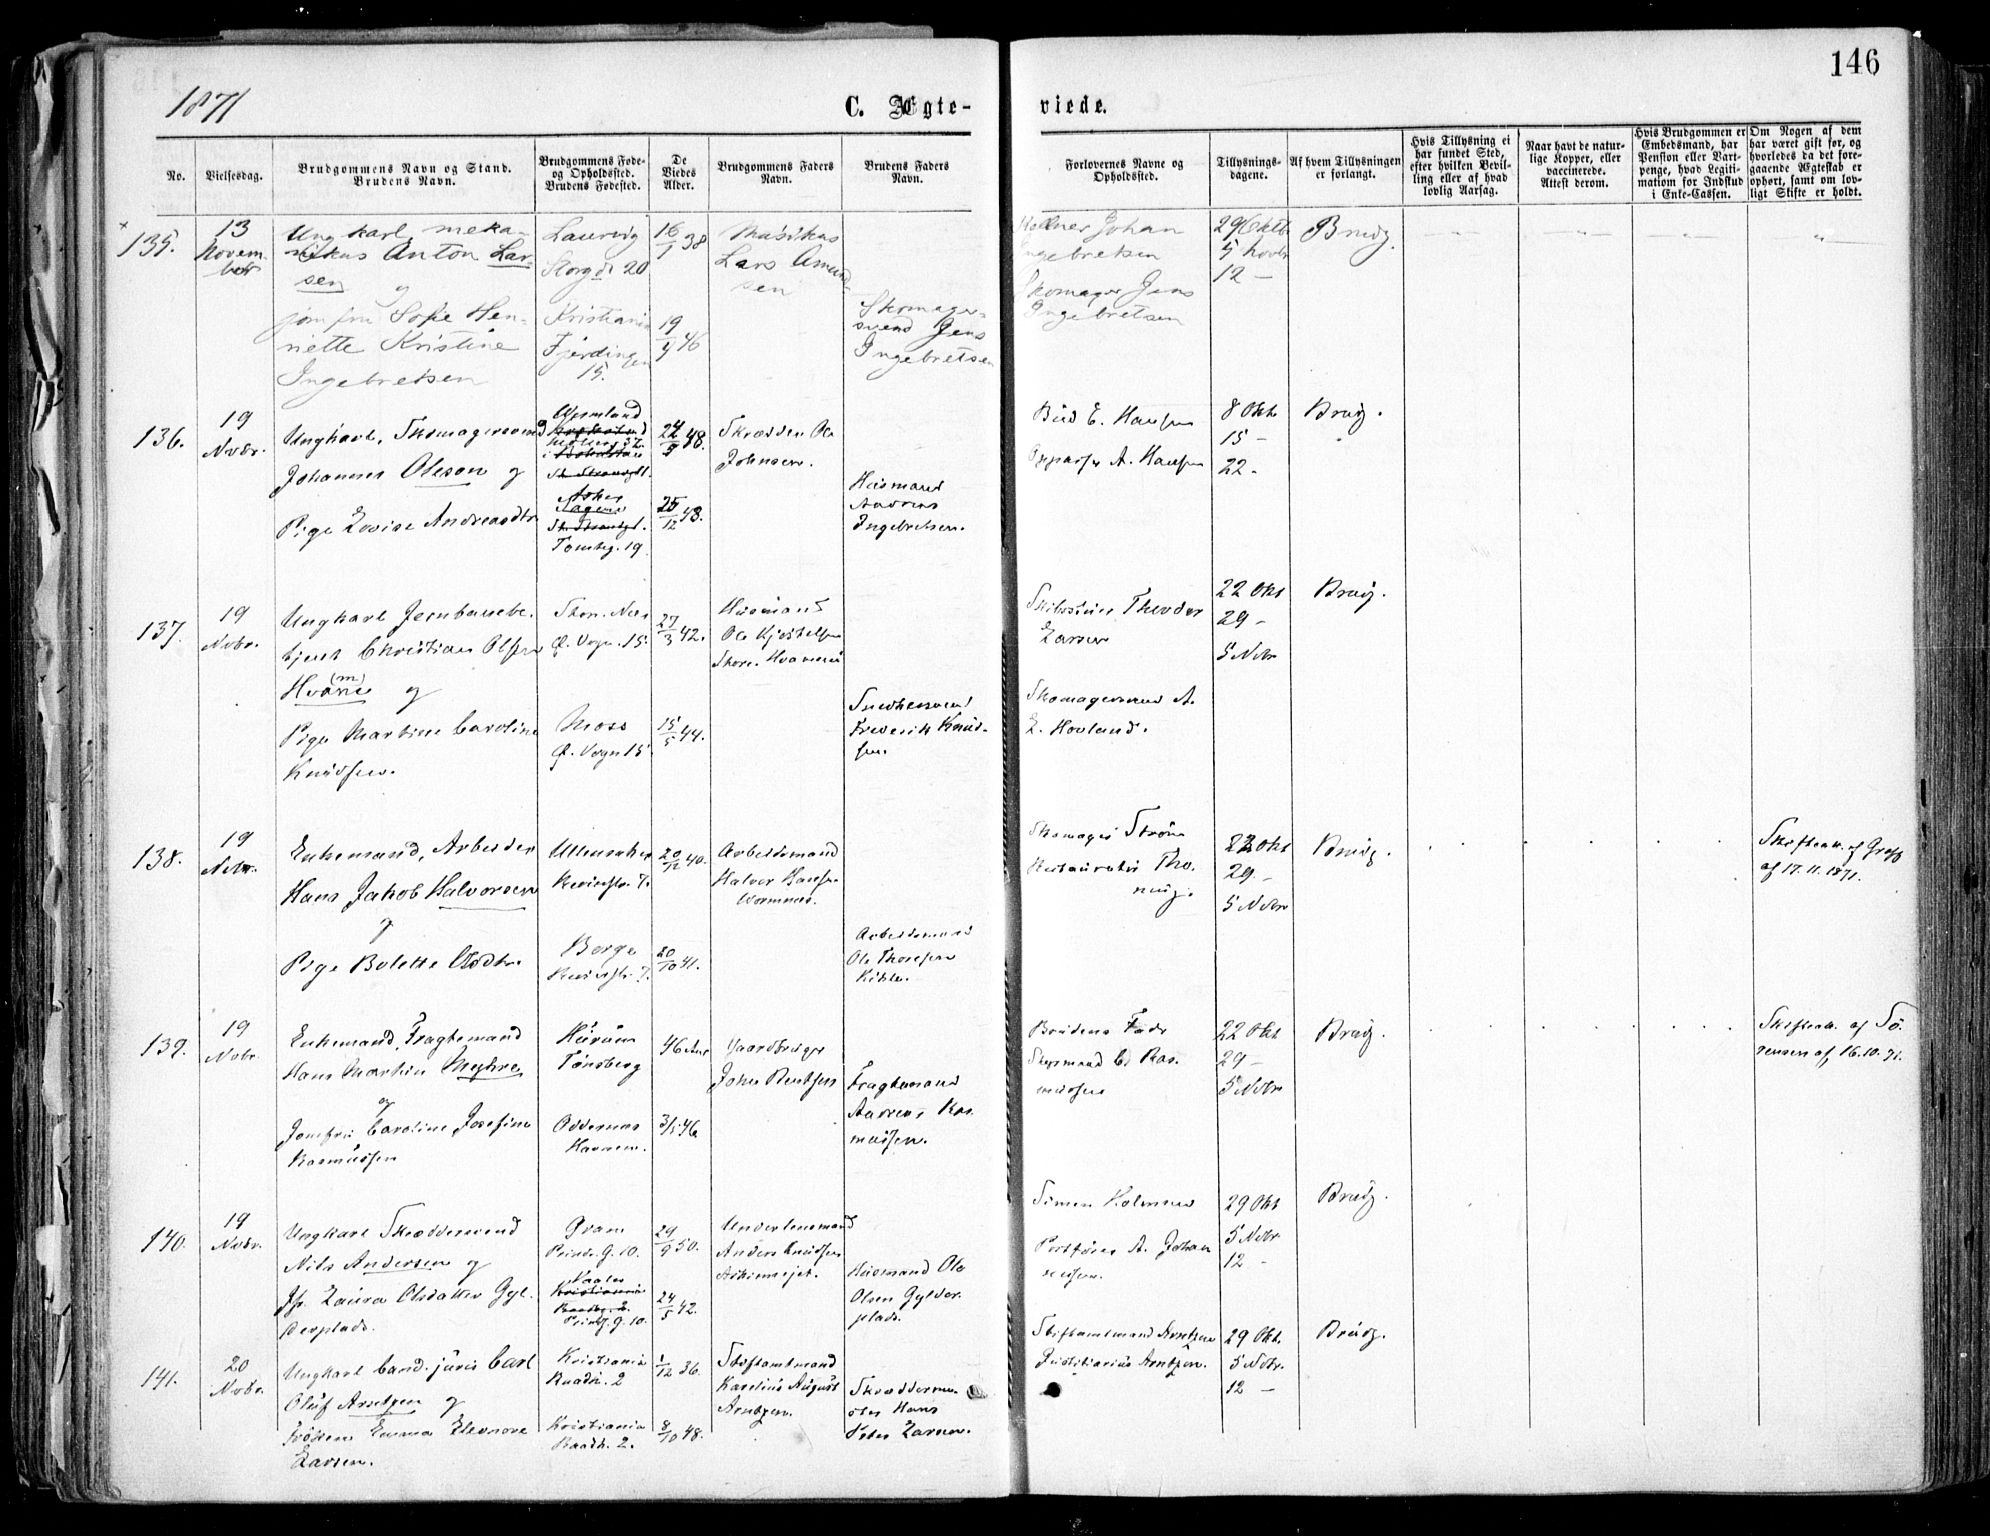 146
1871
C. Ægte-
viede.
No.
Vielsesdag.
Brudgommens Navn og Stand.
Brudens Navn.
Brudgommens Føde-
og Opholdssted.
Brudens Fødested.
De
Viedes
Alder.
Brudgommens Faders
Navn.
Brudens Faders
Navn.
Forlovernes Navne og
Opholdssted.
Tillysnings-
dagene.
Af hvem Tillysningen
er forlangt.
Hvis Tillysning ei
har fundet Sted,
efter hvilken Bevil-
ling eller af hvad
lovlig Aarsag.
Naar havt de natur-
lige Kopper, eller
vaccinerede.
Attest derom.
Hvis Brudgommen er
Embedsmand, har
Pension eller Vart-
penge, hvad Legiti-
mation for Indskud
i Enke-Cassen.
Om Nogen af dem
har været gift før, og
hvorledes da det fore-
gaaende Ægteskab er
ophørt, samt om lov-
ligt Skifte er holdt.
135.
13
Novem-
ber
Ungkarl, meka-
nikus Anton Lar-
sen og
jomfru Sofie Hen-
riette Kristine
Ingebretsen
Laurvig
Storgd 20
Kristiania
Fjerdingen
15.
16/7 38
19/9 46
Musikus
Lars Amund-
sen
Skomager-
svend Jens
Ingebretsen
Johan
Ingebretsen
Skomager Jens
Ingebretsen
29 Oktb
5 Novbr
12 –
Brudg.
136.
19
Novbr.
Ungkarl, Skomagersvend
Johannes Oleson og
Pige Lovise Andreasdtr
Wermland
Asker
Tomteg. 19.
22/9 48.
25/12 48.
Skrædder Ole
Johnsen.
Husmand
Andreas
Ingebretsen.
Bud E. Hansen
A. Hansen
8 Okt
15 –
22 –
Brudg.
137.
19
Novbr.
Ungkarl Jernbanebe-
tjent Christian Olsen
Hvams (m) og
Pige Martine Caroline
Knudsen.
Stor. Næs
Ø. Vogn. 15.
Moss
Ø. Vogn 15.
27/3 42.
15/5 44.
Husmand
Ole Kjostelsen
Smedhersvend
Frederik Knud-
sen.
Theodor
Larsen
Skomagersvend A.
E. Hovland.
22 Okt
29 –
5 Nvbr
Brudg.
138.
19
Nvbr.
Enkemand, Arbeider
Hans Jakob Halvorsen
og
Pige Bolette Olsdtr.
Ullensaker
7.
Borge
7.
20/12 40.
20/10 41.
Arbeidsmand
Halvor Hansen
Arbeidsmand
Ole Thoresen
Skomager Strøm
Restauratør Tho-
22 Okt
29 –
5 Nvbr
Brudg.
Skifteatt. af
af 17.11.1871.
139.
19
Nvbr.
Enkemand, Fragtemand
Hans Martin Myhre
og
Jomfru Caroline Josefine
Rasmussen
Hurum
Tønsberg
Oddernes
Havnen.
46 Aar
3/5 46.
Gaardbruger
Johan Berntsen
Fragtemand
Andreas Ras-
mussen.
Brudens Fader
Styrmand C. Ras-
mussen
22 Okt
29 –
5 Nvbr
Brudg.
Skifteatt. af Sö-
rensen af 16.10.71.
140.
19
Nvbr.
Ungkarl Skræddersvend
Nils Andersen og
Jfr. Laura Olsdatter Gyl-
derplads.
Gran
Prinds. G. 10.
Vaaler
Kristiania
Prindsg. G. 10.
29/9 50.
24/5 42.
Underlensmand
Anders Knudsen
Husmand Ole
Olsen Gylder-
plads.
Simen Holmsen
Postfører A. Johan-
nessen.
29 Okt
5 Nvbr
12 –
Brudg.
141.
20
Nvbr.
Ungkarl Cand. juris Carl
Oluf Arntzen og
Frøken Emma Elenore
Larsen.
Kristiania
Raadh. 2
Kristiania
Raadh. 2.
1/12 36.
8/10 48.
Stiftamtmand
Karelius August
Arntzen.
Skræddermes-
ter Hans
Peter Larsen.
Stiftamtmand Arntzen
Justitiarius Arntzen.
29 Okt.
5 Nvbr.
12 –
Brudg.